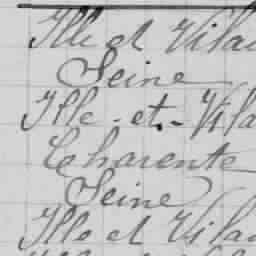 Ille et Vilai
Seine
Ille-et-Vila
Charente
Seine
Ille et Vilai